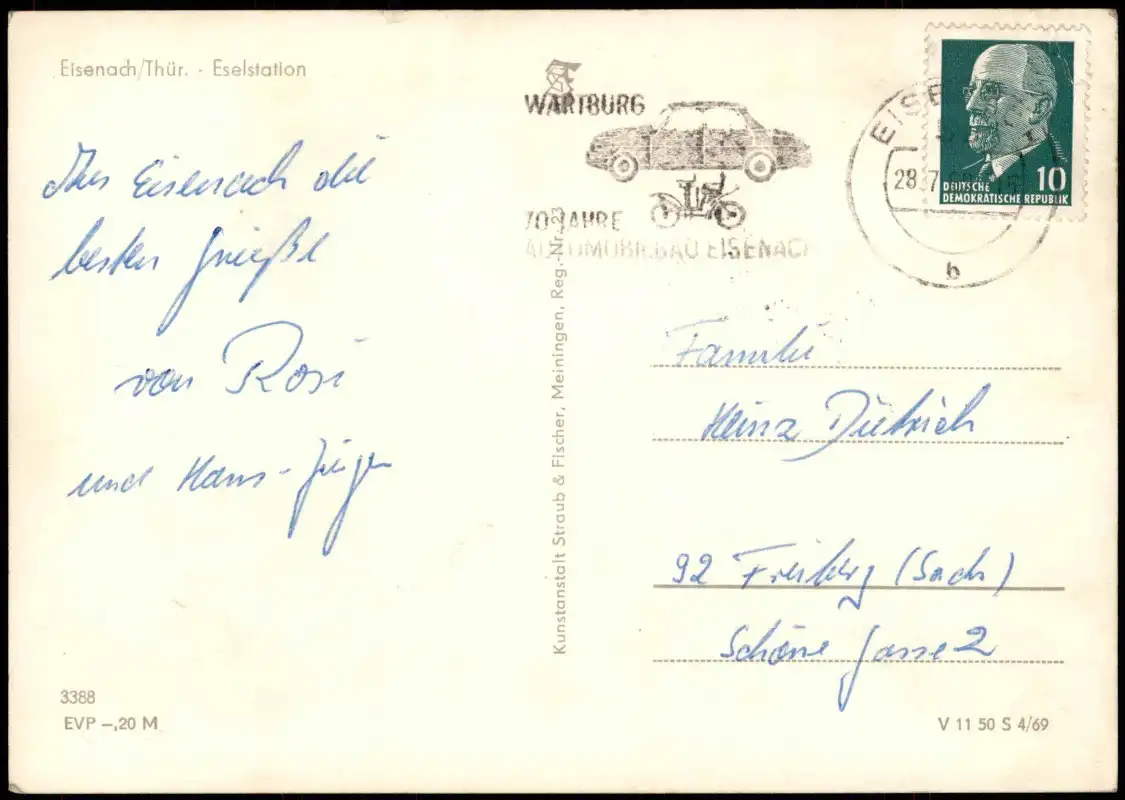 Eisenach/Thür. - Eselstation
Aus Eisenach die
besten Grüße
von Rosi
und Hans-Jürgen
3388
EVP -,20 M
Kunstanstalt Straub & Fischer, Meiningen, Reg.-Nr. 23
WARTBURG
70 JAHRE
AUTOMOBILBAU EISENACH
EISE
28.7.
b
DEUTSCHE
DEMOKRATISCHE REPUBLIK
10
Familie
Heinz Dietrich
92 Freiberg (Sachs)
Schöne Gasse 2
V 11 50 S 4/69